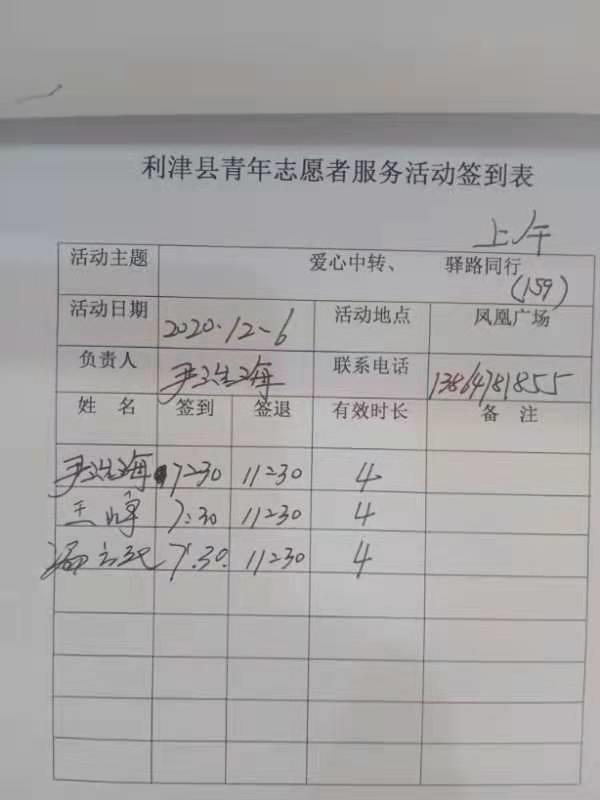 利津县青年志愿者服务活动签到表
上午
活动主题 爱心中转、 驿路同行
(159)
活动日期 2020.12-6 活动地点 凤凰广场
负责人 尹 海 联系电话 13864781855
姓 名 签到 签退 有效时长 备 注
尹 海 7:30 11:30 4
王峰 7:30 11:30 4
7:30. 11:30 4